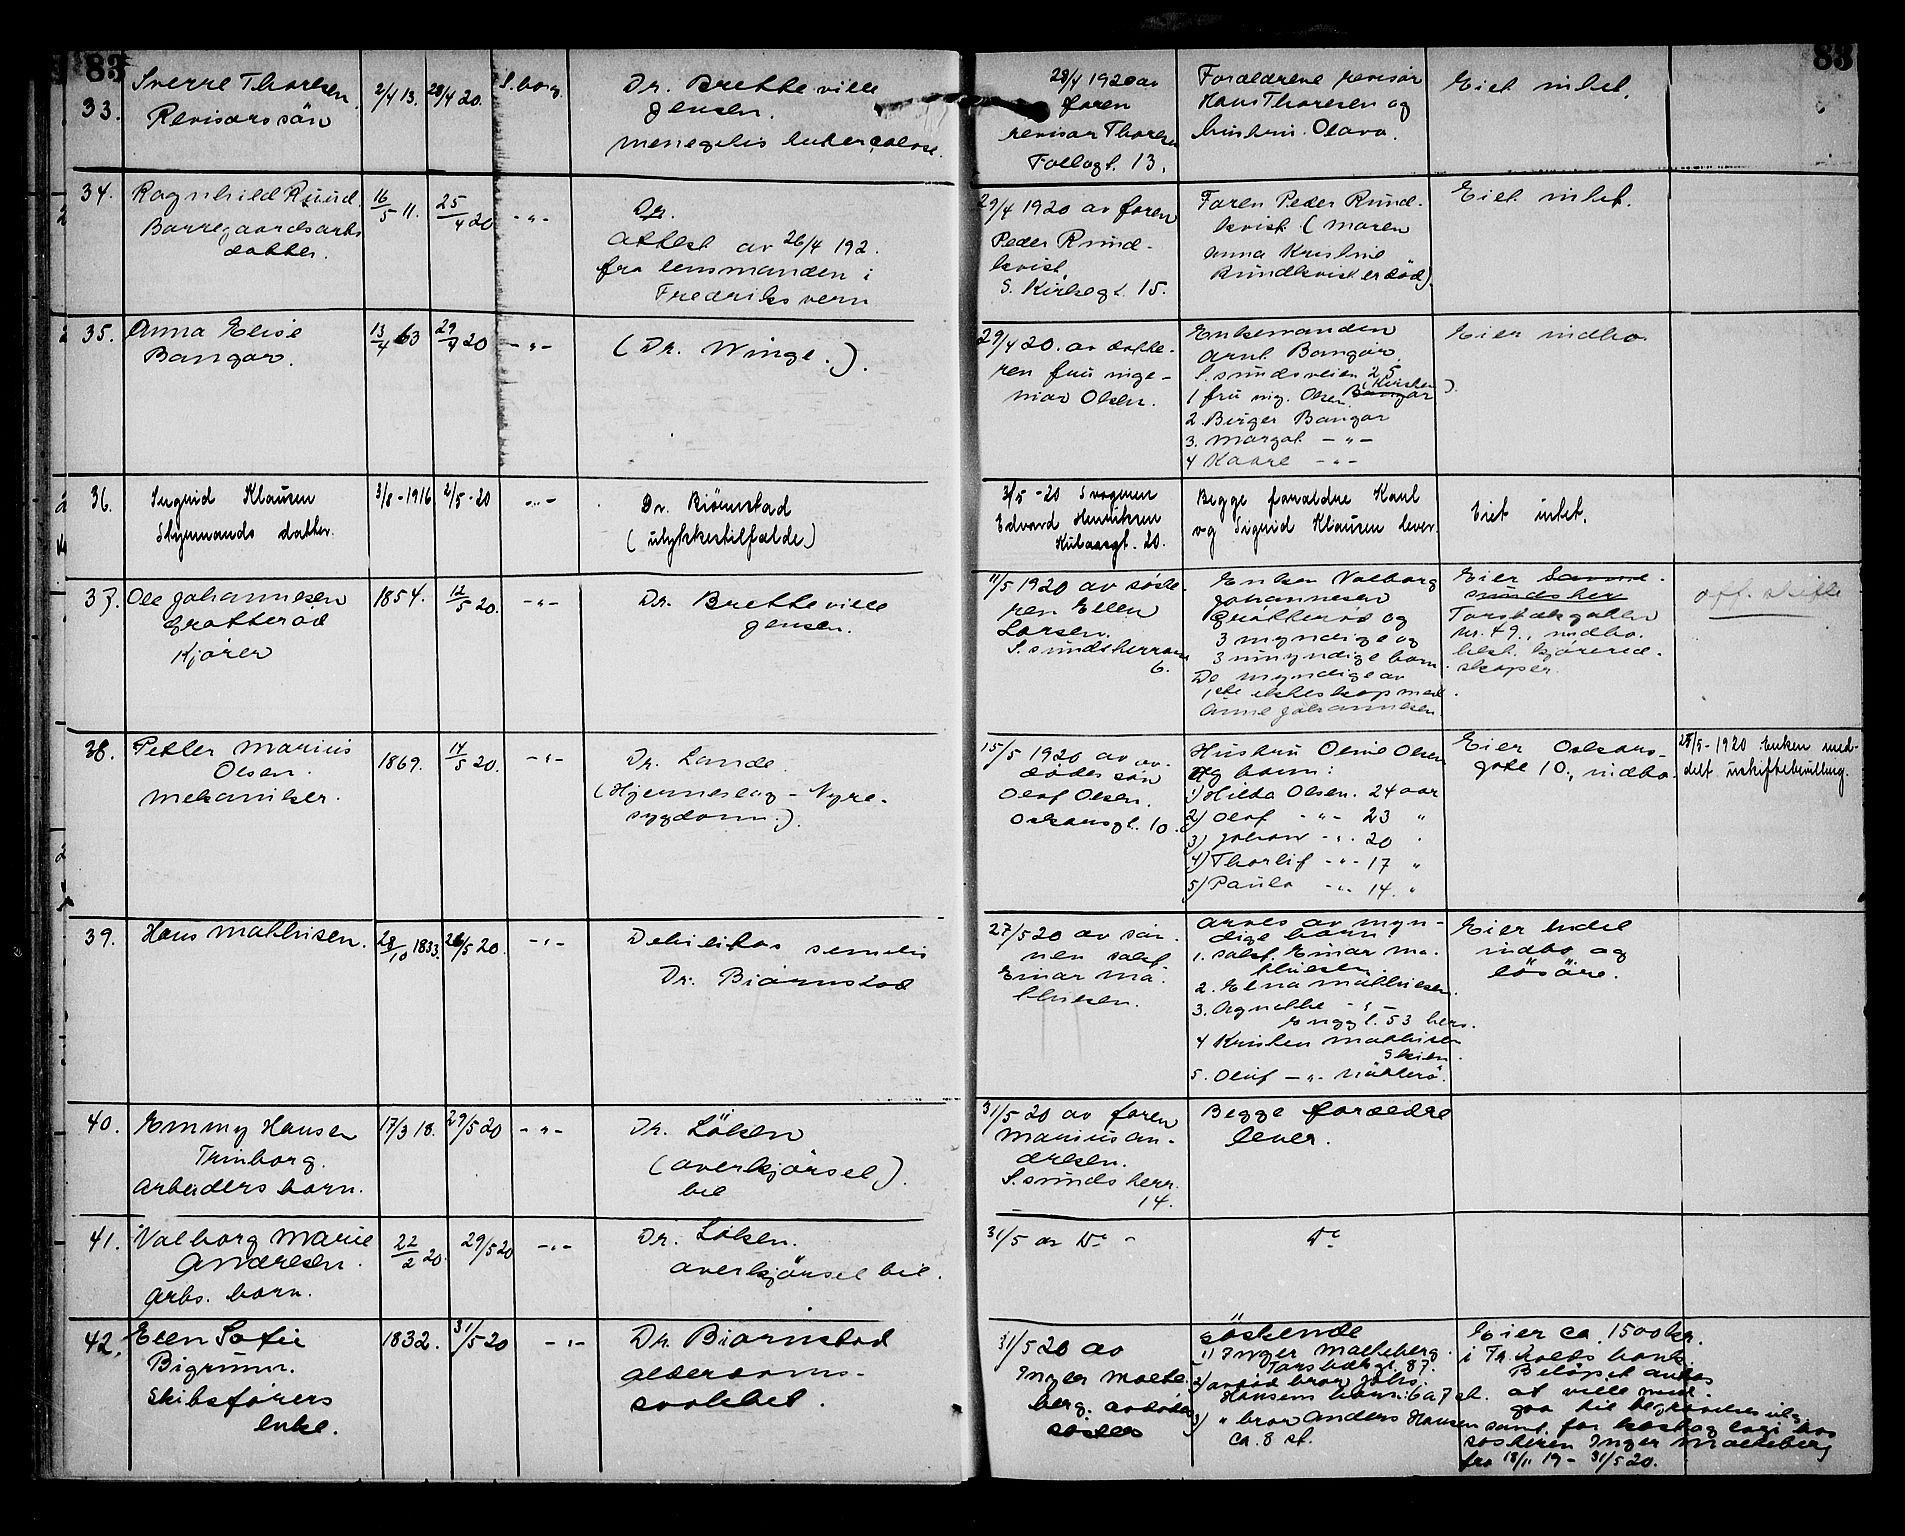 83 83
33. Sverre Thoresen 2/4 13. 28/4 20. S.borg. Dr. Bretteville
Revisorssön Jensen.
menegitis tuberculose.
28/4 1920 av
faren
revisor Thoresen
Follogt. 13.
Forældrene revisor
Hans Thoresen og
hustru Olava.
Eiet intet.
34. Ragnhild Rund
Borregaardsarbs
datter.
16/5 11. 25/4 20 - " -
Dr.
Attest av 26/4 192.
fra lensmanden i
Fredriksvern
29/4 1920 av faren
Peder Rund-
kvist.
S. Kirkegt. 15.
Faren Peder Rund-
kvist (Moren
Anna Kristine
Rundkvist er död).
Eiet intet.
35. Anna Elise
Bangar.
13/4 63 29/4 20 - " -
(Dr. Winge.).
29/4 20. av datte-
ren fru inge-
niör Olsen.
Enkemanden
Arnt Bangar.
S.sundsveien 25
1 fru ing. Olsen Bangar (Kirsten).
2. Birger Bangar
3. Margot - " -
4 Kaare - " -
Eier indbo.
36. Sigrid Klausen
Styrmands datter.
3/8 - 1916 2/5 - 20 - " -
Dr. Biörnstad
(ulykkestilfælde)
3/5 - 20 Svogeren
Edvard Henriksen
Hulaasgt. 20.
Begge forældre Karl
og Sigrid Klausen lever.
Eiet intet.
37. Ole Johannesen
Gratteröd
Kjörer
1854. 12/5 20. - " -
Dr. Bretteville
Jensen.
11/5 1920 av söste-
ren Ellen
Larsen.
S.sundsherrens
6.
Enken Valborg
Johannesen
Gratteröd og
3 myndige og
3 umyndige barn.
De myndige av
1ste ekteskap med
Anne Johannesen
Eier Sanne-
sundsher
Torsbækgaten
nr. 49., indbo.
best. kjörered-
skaper.
off. skifte
38. Petter Marius
Olsen.
Mekaniker.
1869. 14/5 20. - " -
Dr. Lande.
(Hjerneslag - Nyre-
sygdom.).
15/5 1920 av av-
dödes sön
Olaf Olsen.
Oskarsgt. 10.
Hustru Oline Olsen
og barn:
1) Hilda Olsen. 24 aar
2) Olaf - " - 23 "
3) Johan - " - 20 "
4) Thorlif - " - 17 "
5) Paula - " - 14. "
Eier Oskars-
gate 10., indbo.
28/5 - 1920 Enken med-
delt uskiftebevilling.
39. Hans Mathisen.
28/10 1833. 26/5 20. - " -
Debilitas senilis
Dr. Biörnstad
27/5 20 av sön-
nen salsf.
Einar Ma-
thiesen.
Arves av myn-
dige barn
1. salsf. Einar Ma-
thiesen.
2. Elna Mathiesen.
3. Agnethe - " -
53 hers.
4 Kristen Mathisen
Skien.
5. Oluf - " - Nötterö.
Eier endel
indbo og
lösöre.
40. Emmy Hansen
Trinborg.
Arbeiders barn.
17/3 18. 29/5 20 - " -
Dr. Löken
(overkjörsel).
bil
31/5 20 av faren
Marius An-
dresen.
S.sunds herr.
14.
Begge forældre
lever.
41. Valborg Marie
Andresen.
Arbs. barn.
22/2 20. 29/5 20 - " -
Dr. Löken.
overkjörsel bil.
31/5 av Do "
Do
42. Ellen Sofie
Bigrunn.
Skibsförers
enke.
1832. 31/5 20 - " -
Dr. Biörnstad
alderdoms-
svakhet.
31/5 20 av
Inger Molte-
berg. avdödes
söster
Söskende
1) Inger Molteberg.
Torsbækgt. 87.
2) avdöd bror Johs.
Hansens barn: 6 a 7 st.
3) " bror Anders Hansen
ca. 8 st.
Eier ca. 1500 kr.
i Tr. bank.
Belöpet antas
at ville med-
gaa til begravelsesutg.
samt. for kost og losji hos
sösteren Inger Molteberg
fra 18/11 19 - 31/5 20.